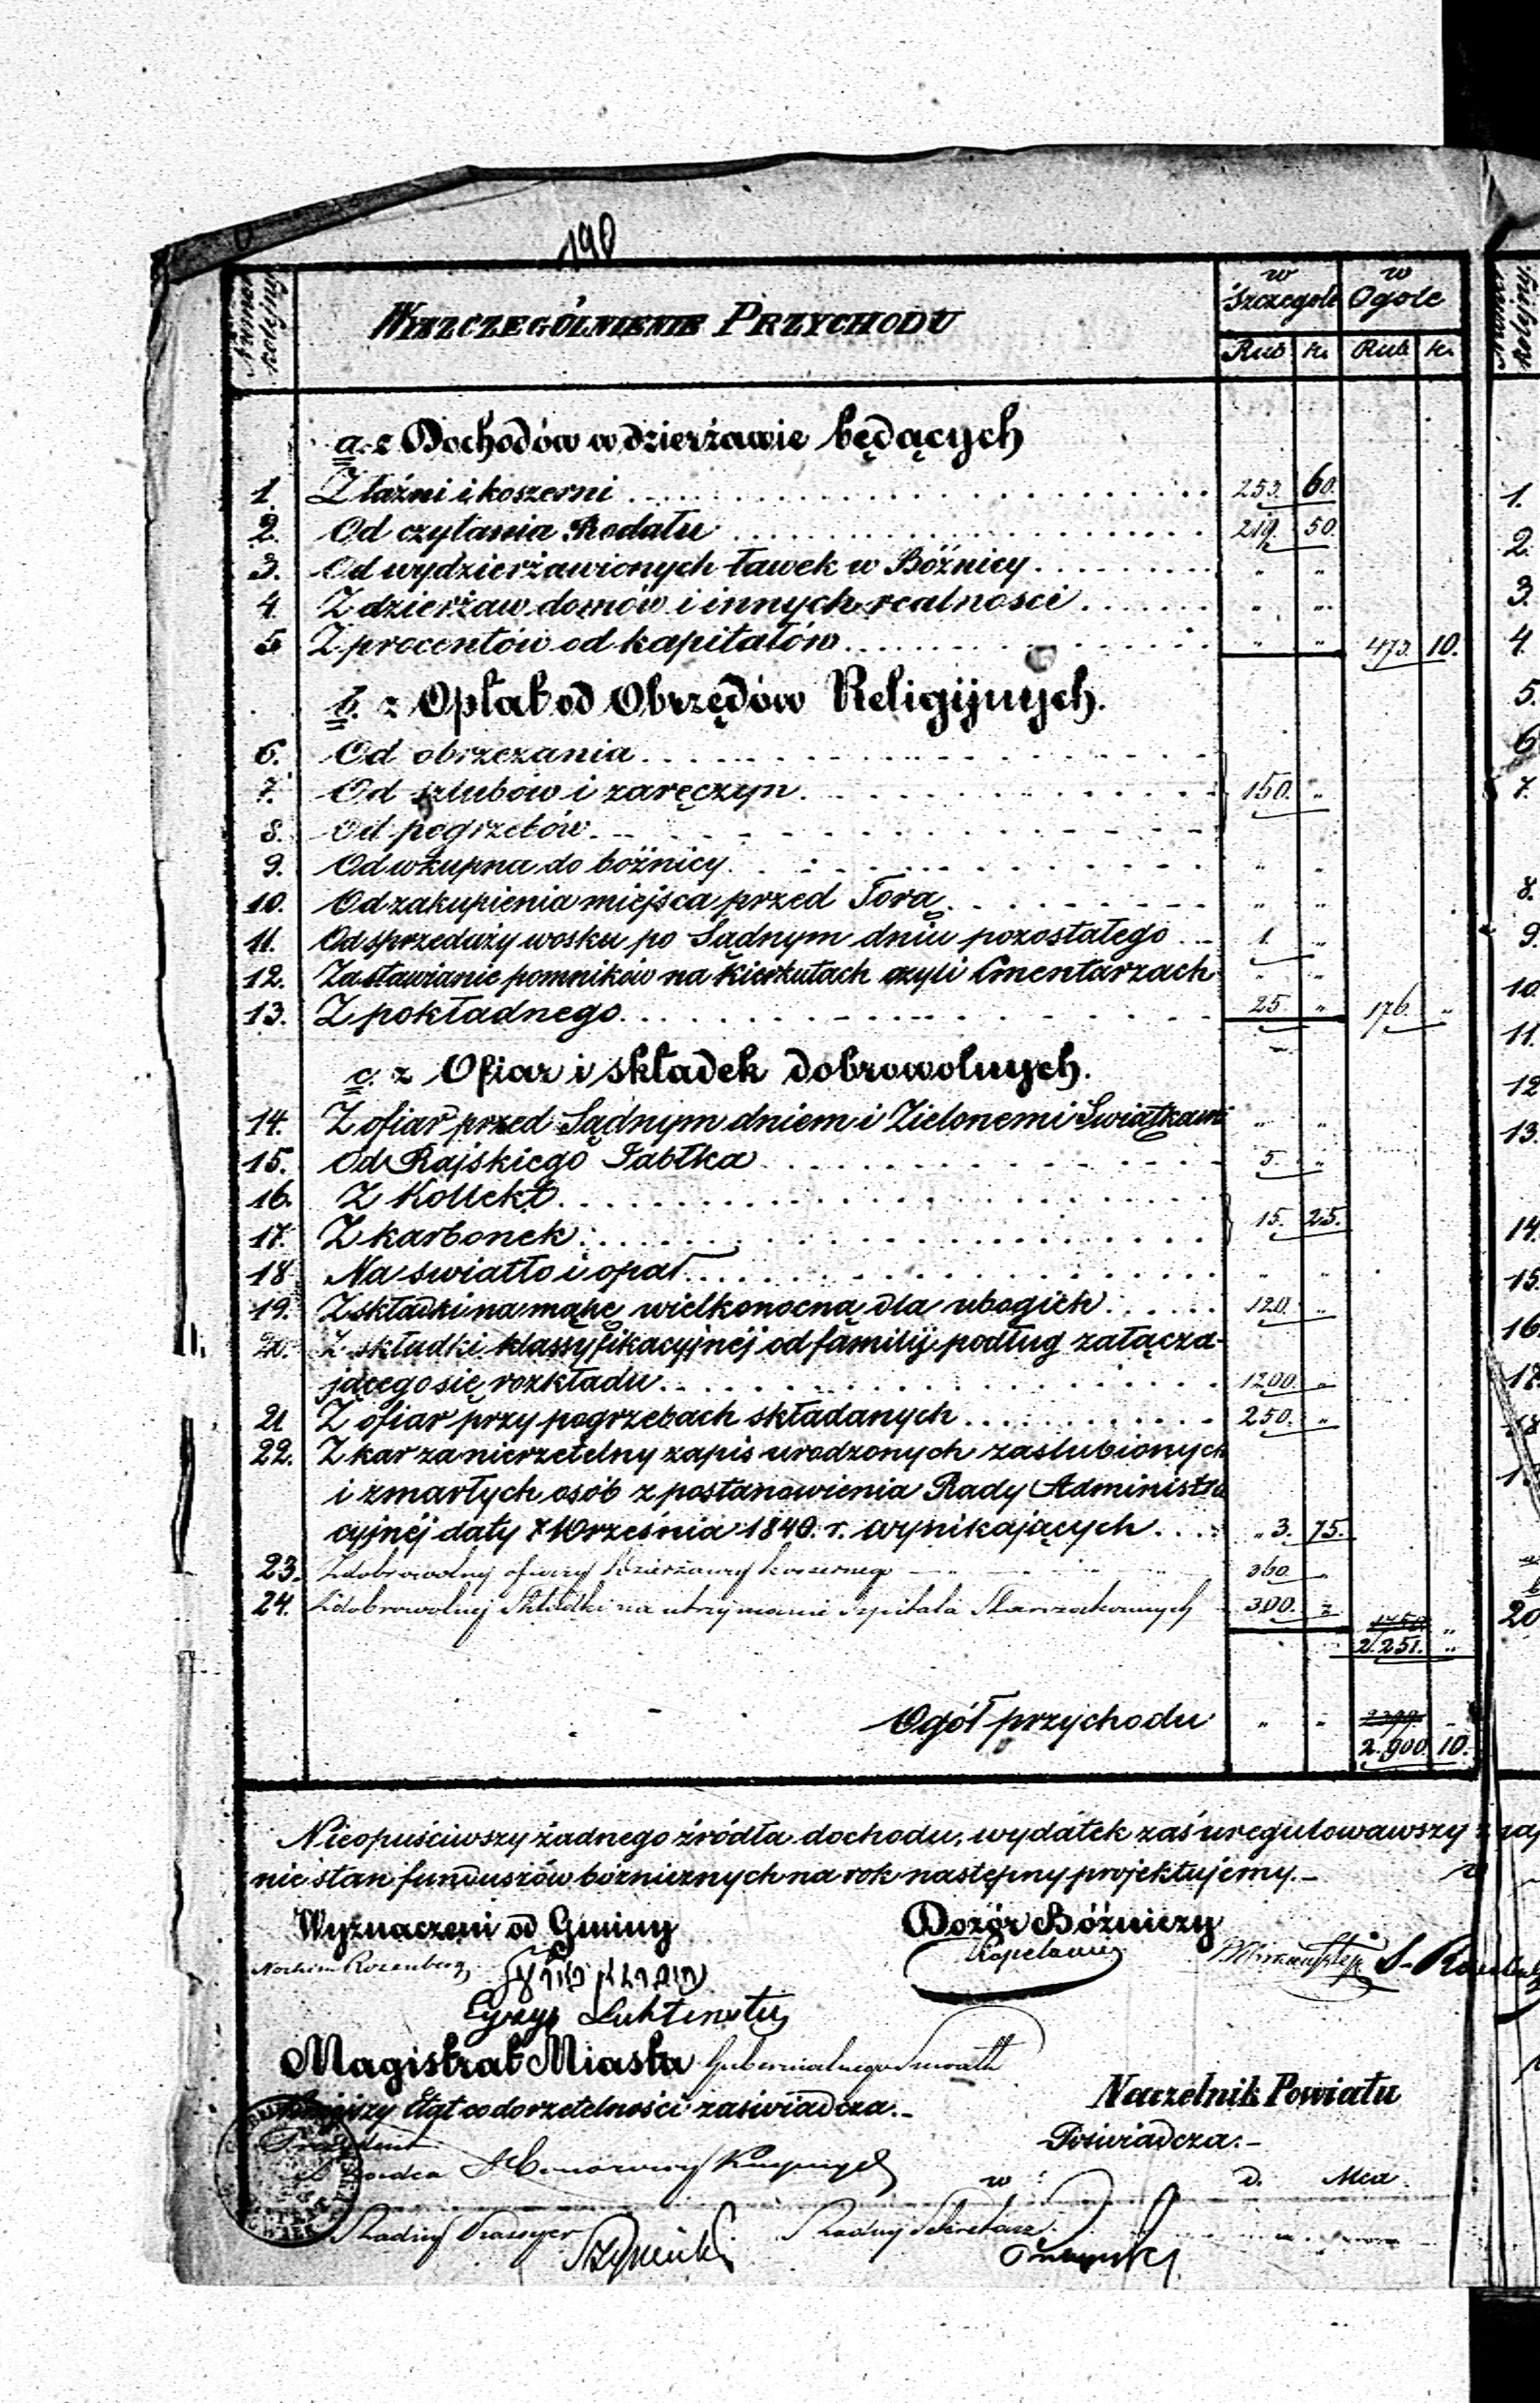 190
Numer kolejny
WYSZCZEGÓLNIENIE PRZYCHODU
w Szczegole
w Ogole
Rub. k. Rub. k.
a. z Dochodów w dzierżawie będących
1. Z łaźni i koszerni 253. 60.
2. Od czytania Rodału 219. 50.
3. Od wydzierżawionych ławek w Bóżnicy " "
4. Z dzierżaw domów i innych realności " "
5. Z procentów od kapitałów " " 473. 10.
b. z Opłat od Obrzędów Religijnych.
6. Od obrzezania
7. Od szlubów i zaręczyn 150. "
8. Od pogrzebów
9. Od wkupna do bóżnicy " "
10. Od zakupienia miejsca przed Torą " "
11. Od sprzedaży wosku po Sądnym dniu pozostałego 1. "
12. Za stawianie pomników na kierkutach czyli Cmentarzach " "
13. Z pokładnego 25 " 176. "
c. z Ofiar i składek dobrowolnych.
14. Z ofiar przed Sądnym dniem i Zielonemi Swiątkami " "
15. Od Rajskiego Jabłka 5. "
16. Z Kollekt
17. Z karbonek 15. 25.
18. Na swiatło i opał " "
19. Z składki na mahę wielkonocną dla ubogich 120. "
20. Z składki klassyfikacyjnéj od familij podług załącza-
jącego się rozkładu 1200. "
21. Z ofiar przy pogrzebach składanych 250. "
22. Z kar za nierzetelny zapis urodzonych zaslubionych
i zmarłych osób z postanowienia Rady Administra
cyjnéj daty 7 Września 1840. r. wynikających " 3. 75.
23. Z dobrowolnej ofiary Dzierżawcy koszernego 360. "
24. Z dobrowolnej Składki na utrzymanie Szpitala Starozakonnych 300. "
2.251. "
Ogół przychodu " "
2.900 10.
Nieopuściwszy żadnego źródła dochodu, wydatek zaś uregulowawszy
nie stan funduszów bóżnicznych na rok następny projektujemy.
Wyznaczeni od Gminy
Dozór Bóźniczy
Rozenberg
Magistrat Miasta Gubernialnego Suwałk
Niniejszy Etat co do rzetelności zaświadcza.
Naczelnik Powiatu
Poświadcza.
Prezydent
w d. Mca
Radny Kassyer
Radny Sekretarz